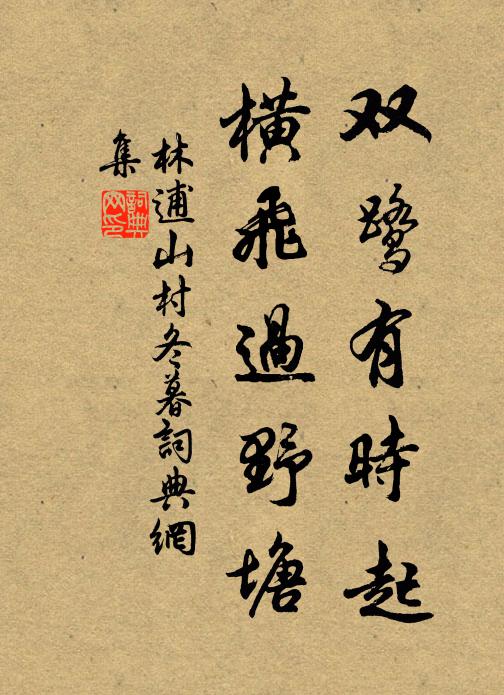 双鹭有時起
橫飛過野塘
林逋山村冬暮詞典網
集
詞典
网印